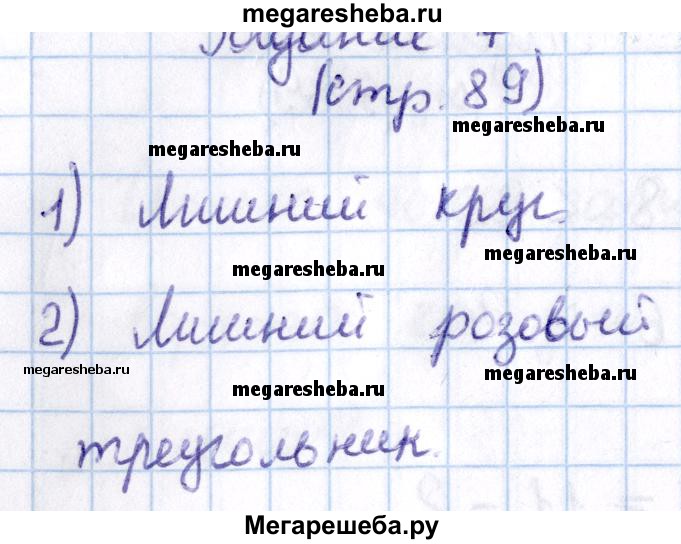 megaresheba.ru
Задание 7
(стр. 89)
megaresheba.ru
megaresheba.ru
1) Лишний круг.
megaresheba.ru
megaresheba.ru
2) Лишний розовый
megaresheba.ru
megaresheba.ru
megaresheba.ru
треугольник.
Мегарешеба.ру